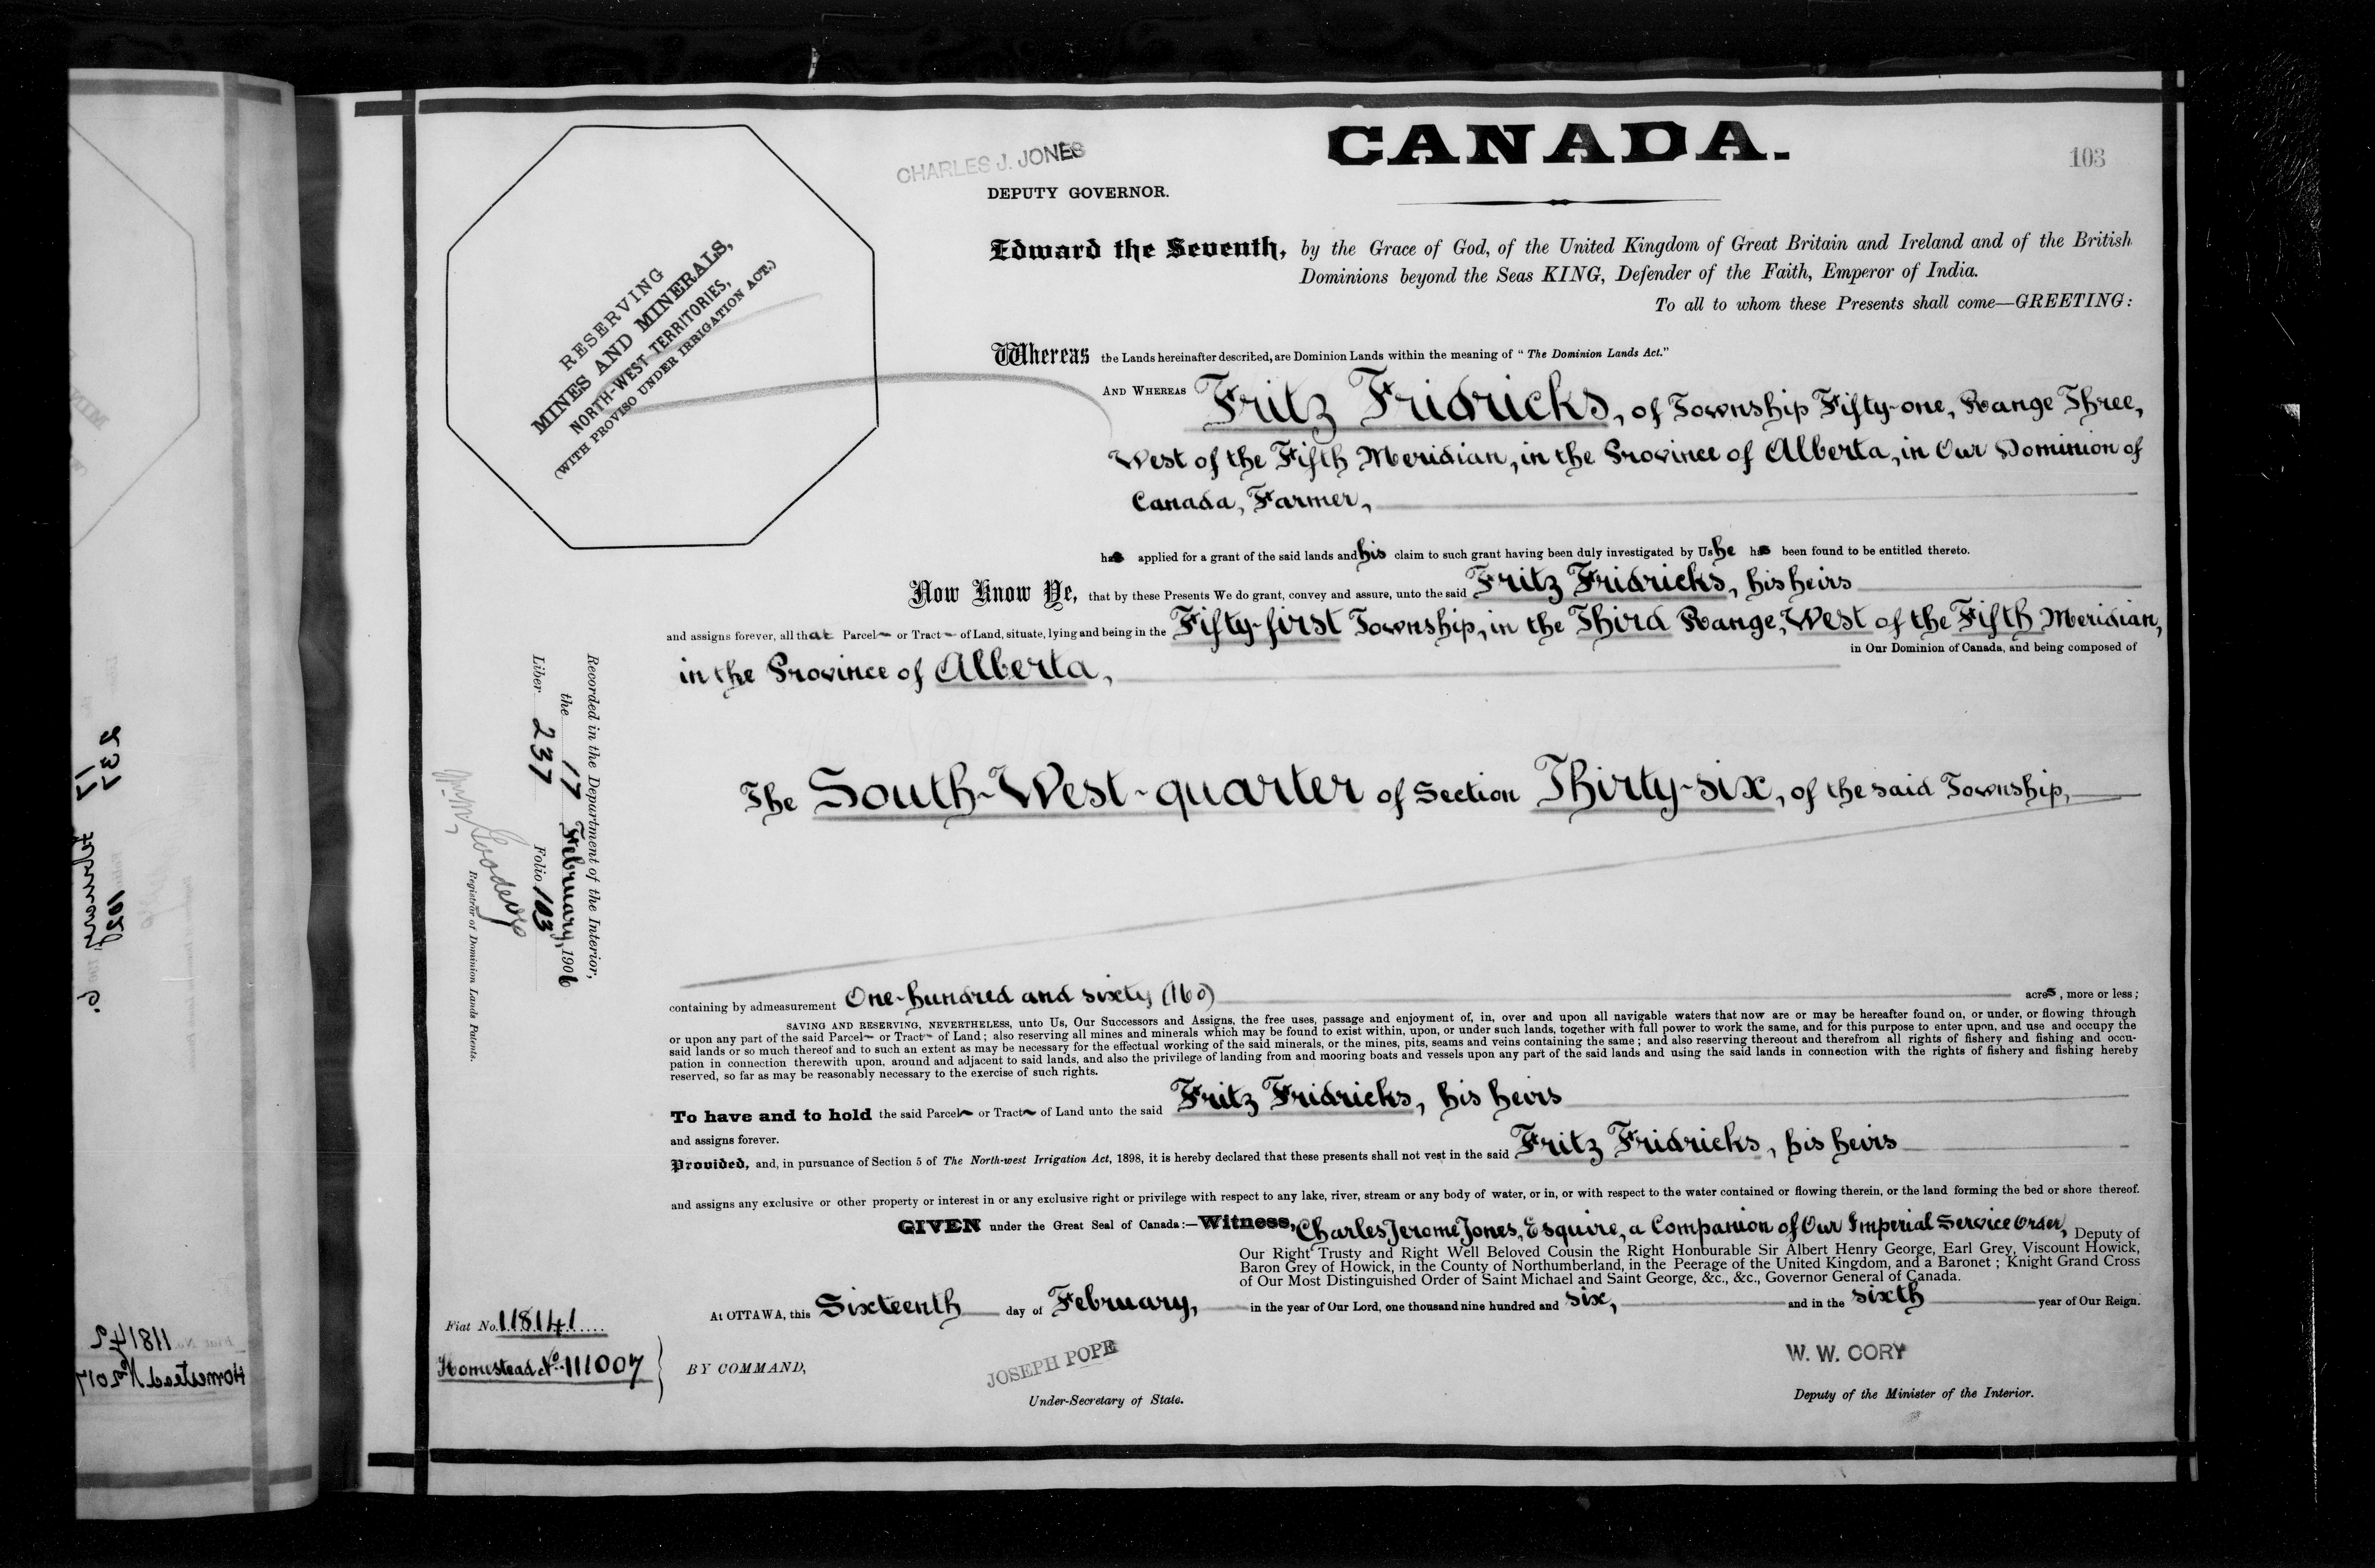 CANADA.
103
CHARLES J. JONES
DEPUTY GOVERNOR.
RESERVING
MINES AND MINERALS,
NORTH-WEST TERRITORIES,
(WITH PROVISO UNDER IRRIGATION ACT.)
Edward the Seventh, by the Grace of God, of the United Kingdom of Great Britain and Ireland and of the British
Dominions beyond the Seas KING, Defender of the Faith, Emperor of India.
To all to whom these Presents shall come—GREETING:
Whereas the Lands hereinafter described, are Dominion Lands within the meaning of "The Dominion Lands Act."
AND WHEREAS Fritz Fridricks, of Township Fifty-one, Range Three,
West of the Fifth Meridian, in the Province of Alberta, in Our Dominion of
Canada, Farmer,
has applied for a grant of the said lands and his claim to such grant having been duly investigated by Us he has been found to be entitled thereto.
Now Know Ye, that by these Presents We do grant, convey and assure, unto the said Fritz Fridricks, his heirs
and assigns forever, all that Parcel or Tract of Land, situate, lying and being in the Fifty-first Township, in the Third Range, West of the Fifth Meridian,
in Our Dominion of Canada, and being composed of
in the Province of Alberta,
The South-West-quarter of Section Thirty-six, of the said Township,
Recorded in the Department of the Interior,
the 17 February, 1906
Liber 237 Folio 103
Registrar of Dominion Lands Patents.
containing by admeasurement One-hundred and sixty (160) acres, more or less;
SAVING AND RESERVING, NEVERTHELESS, unto Us, Our Successors and Assigns, the free uses, passage and enjoyment of, in, over and upon all navigable waters that now are or may be hereafter found on, or under, or flowing through
or upon any part of the said Parcel or Tract of Land; also reserving all mines and minerals which may be found to exist within, upon, or under such lands, together with full power to work the same, and for this purpose to enter upon, and use and occupy the
said lands or so much thereof and to such an extent as may be necessary for the effectual working of the said minerals, or the mines, pits, seams and veins containing the same; and also reserving thereout and therefrom all rights of fishery and fishing and occu-
pation in connection therewith upon, around and adjacent to said lands, and also the privilege of landing from and mooring boats and vessels upon any part of the said lands and using the said lands in connection with the rights of fishery and fishing hereby
reserved, so far as may be reasonably necessary to the exercise of such rights.
To have and to hold the said Parcel or Tract of Land unto the said Fritz Fridricks, his heirs
and assigns forever.
Provided, and, in pursuance of Section 5 of The North-west Irrigation Act, 1898, it is hereby declared that these presents shall not vest in the said Fritz Fridricks, his heirs
and assigns any exclusive or other property or interest in or any exclusive right or privilege with respect to any lake, river, stream or any body of water, or in, or with respect to the water contained or flowing therein, or the land forming the bed or shore thereof.
GIVEN under the Great Seal of Canada:—Witness, Charles Jerome Jones, Esquire, a Companion of Our Imperial Service Order, Deputy of
Our Right Trusty and Right Well Beloved Cousin the Right Honourable Sir Albert Henry George, Earl Grey, Viscount Howick,
Baron Grey of Howick, in the County of Northumberland, in the Peerage of the United Kingdom, and a Baronet; Knight Grand Cross
of Our Most Distinguished Order of Saint Michael and Saint George, &c., &c., Governor General of Canada.
At OTTAWA, this Sixteenth day of February, in the year of Our Lord, one thousand nine hundred and six, and in the sixth year of Our Reign.
Fiat No. 118141
Homestead No. 111007
BY COMMAND,
JOSEPH POPE
Under-Secretary of State.
W. W. CORY
Deputy of the Minister of the Interior.